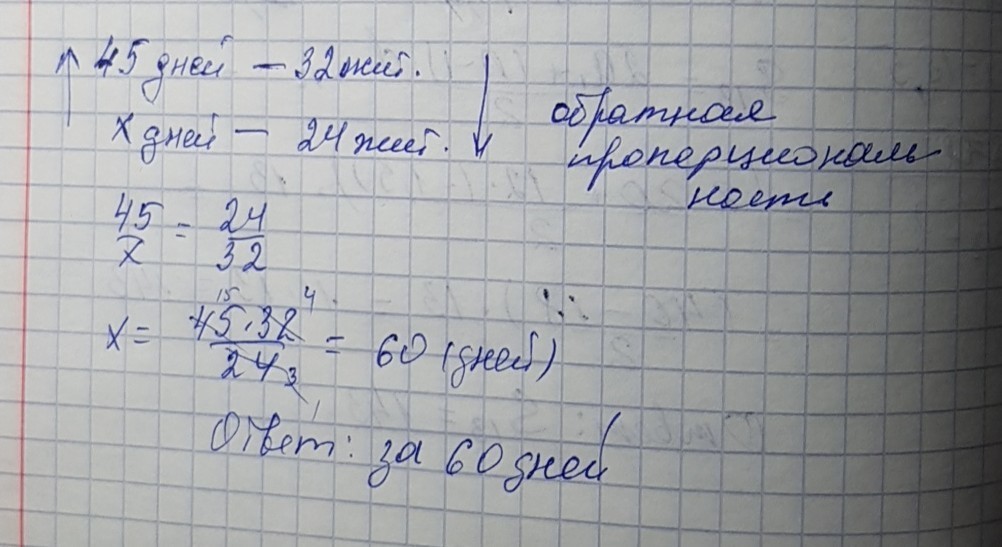 45 дней – 32 жит.
x дней – 24 жит.
обратная
пропорциональ
ность
45/x = 24/32
x = 45·32/24 = 60 (дней)
15 4
3
1
Ответ: за 60 дней